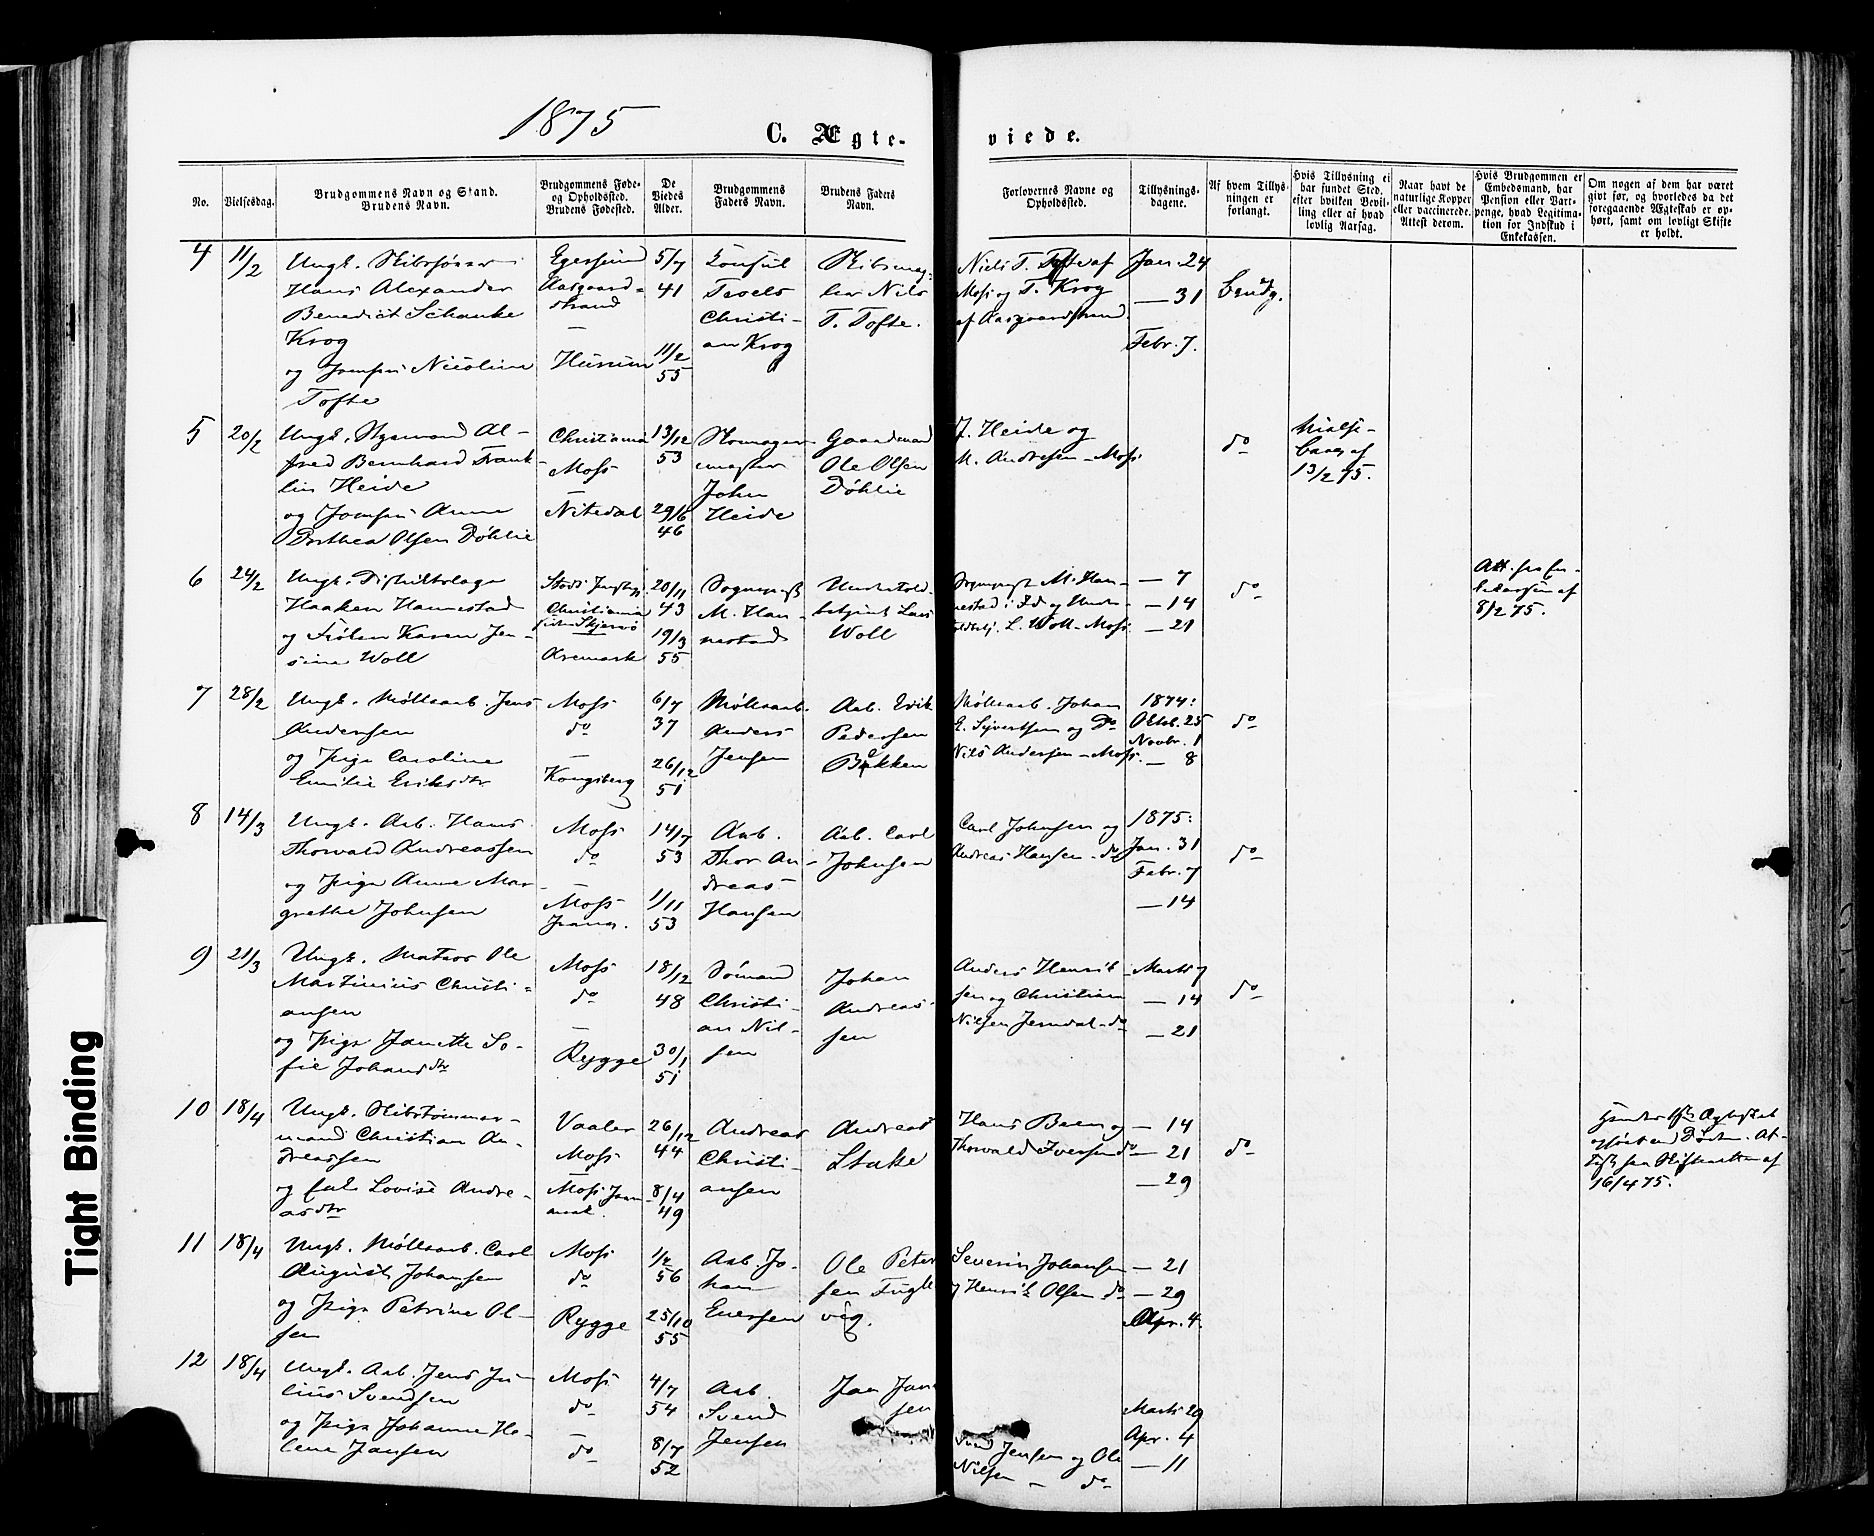 1875
C. Ægte-
viede.
No.
Vielsesdag.
Brudgommens Navn og Stand.
Brudens Navn.
Brudgommens Føde-
og Opholdssted.
Brudens Fødested.
De
Viedes
Alder.
Brudgommens
Faders Navn.
Brudens Faders
Navn.
Forlovernes Navne og
Opholdssted.
Tillysnings-
dagene.
Af hvem Tillys-
ningen er
forlangt.
Hvis Tillysning ei
har fundet Sted,
efter hvilken Bevil-
ling eller af hvad
lovlig Aarsag.
Naar havt de
naturlige Kopper
eller vaccinerede.
Attest derom.
Hvis Brudgommen er
Embedsmand, har
Pension eller Vart-
penge, hvad Legitima-
tion for Indskud i
Enkekassen.
Om nogen af dem har været
givt før, og hvorledes da det
foregaaende Ægteskab er op-
hørt, samt om lovligt Skifte
er holdt.
4
11/2
Ungk. Skibsfører
Hans Alexander
Benedict Schanke
Krog
og Jomfru Nicoline
Tofte
Egersund
Aasgaard-
strand
—
Husum
5/7
41
11/2
55
Consul
Troels
Christi-
an Krog
Skibsmæg-
ler Nils
T. Tofte.
Niels T. Tofte af
Moss og T. Krog
af Aasgaardstrand.
Jan. 24
— 31
Febr. 7.
Brudg.
5
20/2
Ungk. Styrmand Al-
fred Bernhard Frank-
lin Heide
og Jomfru Anne
Dorthea Olsen Döhlie
Christiania
Moss
—
Nitedal
13/12
53
29/6
46
Skomager-
mester
John
Heide
Gaardmand
Ole Olsen
Döhlie
J. Heide og
M. Andresen - Moss
do
13/2 75.
6
24/2
Ungk. Distriktslæge
Haaken Hannestad
og Fröken Karen Jen-
sine Woll
Christiania
Skjervö
Aremark
20/11
43
19/3
55
Sogneprest
M. Han-
nestad
Undertold-
betjent Lars
Woll
Sogneprest M. Han-
nestad i Id og Under-
toldbetj. L. Woll - Moss.
— 7
— 14
— 21
do
Att. fra En-
kekassen af
8/2 75.
7
28/2
Ungk. Møllearb. Jens
Andersen
og Pige Caroline
Emilie Eriksdtr
Moss
do
—
Kongsberg
6/7
37
26/12
51
Møllearb.
Anders
Jensen
Arb. Erik
Pedersen
Bakken
Møllearb. Johan
E. Syvertsen og Do
Nils Andersen - Moss.
1874:
Oktob. 25
Novbr. 1
— 8
do
8
14/3
Ungk. Arb. Hans
Thorvald Andreassen
og Pige Anne Mar-
grethe Johnsen
Moss
do
—
Moss
14/7
53
1/11
53
Arb.
Thor An-
dreas
Hansen
Arb. Carl
Johnsen
Carl Johnsen og
Andreas Hansen - do
1875:
Jan. 31
Febr. 7
— 14
do
9
21/3
Ungk. Matros Ole
Martinius Christi-
ansen
og Pige Janette So-
fie Johansdtr
Moss
do
—
Rygge
18/12
48
30/1
51
Sömand
Christi-
an Nil-
sen
Johan
Andreas-
sen
Anders Henrik-
sen og Christian
Nilsen Jerndal - do
Marts 7
— 14
— 21
do
10
18/4
Ungk. Skibstömmer-
mand Christian An-
dreassen
og Lovise Andre-
asdtr
Vaaler
Moss
—
Moss
26/12
44
8/4
49
Andreas
Christi-
ansen
Andreas
Stake
Hans Been og
Thorvald Iversen do
— 14
— 21
— 29
do
16/4 75.
11
18/4
Ungk. Møllearb. Carl
August Johansen
og Pige Petrine Ol-
sen
Moss
do
Rygge
1/2
56
25/10
55
Arb. Jo-
han
Enersen
Ole Peter-
sen Fugle-
vig.
Severin Johansen
og Henrik Olsen do
— 21
— 29
Apr. 4.
12
18/4
Ungk. Arb. Jens Ju-
lius Svendsen
og Pige Johanne He-
lene Jansen
Moss
do
—
do
4/7
54
8/7
52
Arb.
Svend
Jensen
Jan Jan-
sen
Svend Jensen og Ole
Nilsen - do
Marts 29
Apr. 4
— 11
Tight Binding